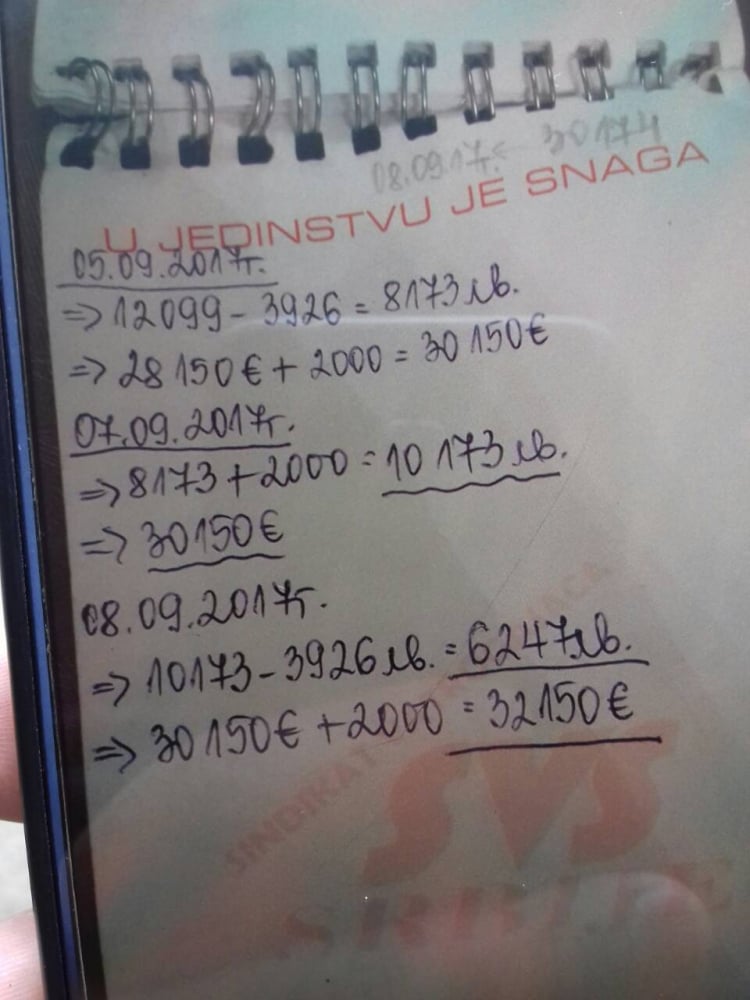 08.09.17г. 30174
U JEDINSTVU JE SNAGA
05.09.2017г.
=> 12099 - 3926 = 8173 лв.
=> 28 150 € + 2000 = 30 150 €
07.09.2017г.
=> 8173 + 2000 = 10 173 лв.
=> 30150 €
08.09.2017г.
=> 10173 - 3926 лв. = 6247 лв.
=> 30 150 € + 2000 = 32150 €
SINDIKAT
SVS